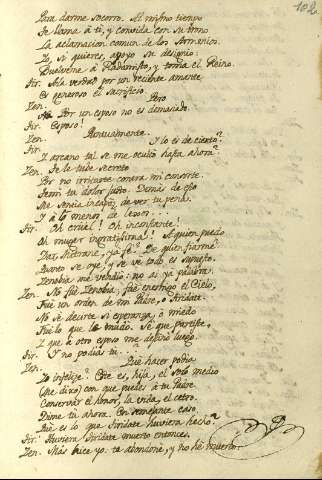 102
Para darme socorro. Al mismo tiempo
Te llama a ti, y convida con su trono
La aclamacion comun de los Armenios.
Yo, si quieres, apoyo su designio:
Vuelveme á Radamisto, y toma el Reino.
Tir. A la verdad por un reciente amante
Es generoso el sacrificio.
Zen. Pero
Por un esposo no es demasiado.
Tir. Esposo!
Zen. Nuevamente.
Tir. Y lo es de cierto?
Y arcano tal se me ocultó hasta ahora?
Zen. Fue secreto
Por no irritarte contra mi consorte.
Temí tu dolor justo. Demas de eso
Me sentia incapaz de ver tu pena.
Y á lo menor de
Tir. Oh cruel! Oh inconstante!
Oh muger ingratisima! A quien puedo
Dar, ya fé? De quien fiarme?
Quanto se oye, y se vé todo es supuesto.
Zenobia me vendió: no ai ya palabra.
Zen. No fué Zenobia, fué enemigo el Cielo,
Fue un orden de mi Padre, o Tiridate.
No sé decirte si esperanza, ó miedo
Fué lo que le mudó. Sé que partiste,
Y que á otro esposo me destinó luego.
Tir. Y no podias tu?
Zen. Qué hacer podia
Yo infelize? Este es, hija, el solo medio
(Me dixo) con que puedes á tu Padre
Conservar el honor, la vida, el cetro.
Dime tu ahora. En semejante caso
Qué es lo que Tiridate huviera hecho?
Tir. Huviera Tiridate muerto entonces.
Zen. Mas hice yo: te abandoné, y no he muerto.